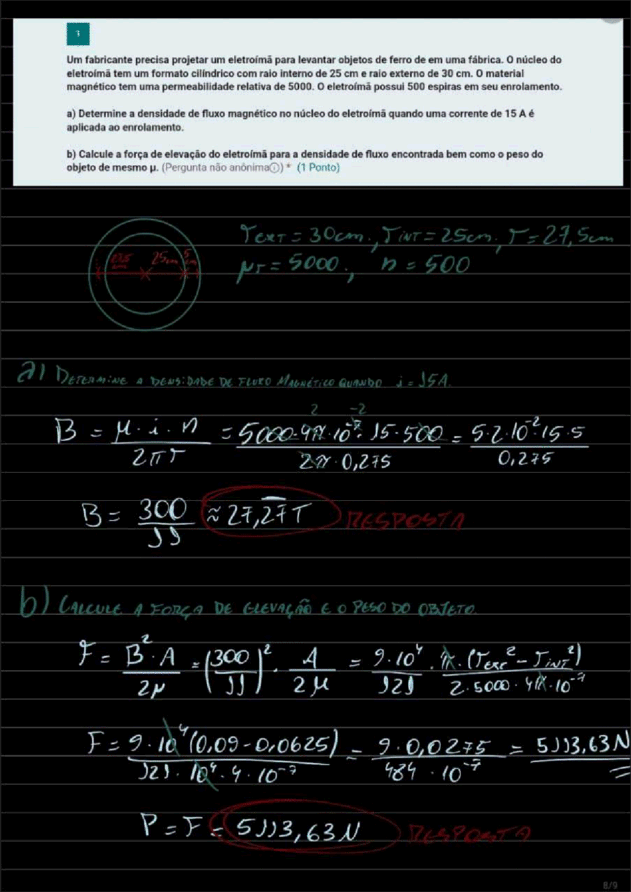 3
Um fabricante precisa projetar um eletroímã para levantar objetos de ferro de em uma fábrica. O núcleo do
eletroímã tem um formato cilíndrico com raio interno de 25 cm e raio externo de 30 cm. O material
magnético tem uma permeabilidade relativa de 5000. O eletroímã possui 500 espiras em seu enrolamento.
a) Determine a densidade de fluxo magnético no núcleo do eletroímã quando uma corrente de 15 A é
aplicada ao enrolamento.
b) Calcule a força de elevação do eletroímã para a densidade de fluxo encontrada bem como o peso do
objeto de mesmo μ. (Pergunta não anônima) * (1 Ponto)
rEXT = 30cm., rINT = 25cm., r = 27,5cm
μr = 5000, n = 500
25cm 5cm
a) DETERMINE A DENSIDADE DE FLUXO MAGNÉTICO QUANDO i = 15A.
B = μ·i·n / 2πr = 5000·4π·10^-7·15·500 / 2π·0,275 = 5·2·10^-2·15·5 / 0,275
B = 300/11 ≈ 27,27T RESPOSTA
b) CALCULE A FORÇA DE ELEVAÇÃO E O PESO DO OBJETO.
F = B²·A / 2μ = (300/11)² · A/2μ = 9·10^4/121 · π·(rEXT² - rINT²) / 2·5000·4π·10^-7
F = 9·10^4(0,09-0,0625) / 121·10^4·4·10^-7 = 9·0,0275 / 484·10^-7 = 5113,63N
P = F = 5113,63N RESPOSTA
8/9